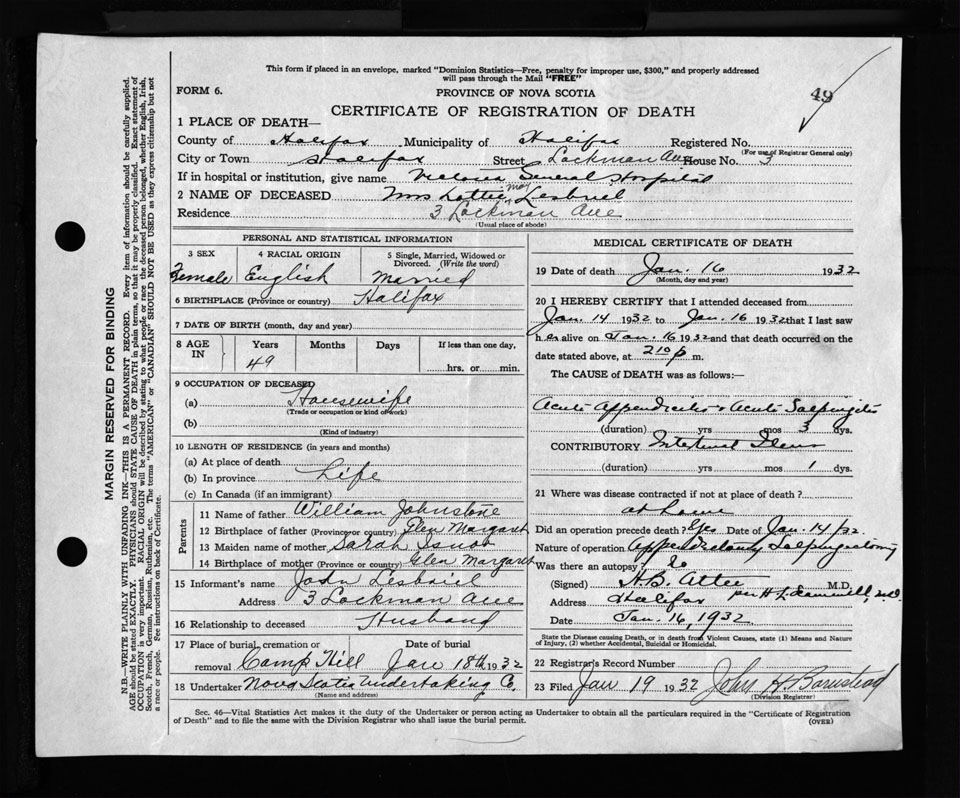 This form if placed in an envelope, marked "Dominion Statistics—Free, penalty for improper use, $300," and properly addressed
will pass through the Mail "FREE"
FORM 6.
PROVINCE OF NOVA SCOTIA
49
CERTIFICATE OF REGISTRATION OF DEATH
1 PLACE OF DEATH—
County of Halifax Municipality of Halifax Registered No.
(For use of Registrar General only)
City or Town Halifax Street Lockman Ave House No. 3
If in hospital or institution, give name Victoria General Hospital
2 NAME OF DECEASED Mrs Lottie May
Residence 3 Lockman Ave
(Usual place of abode)
PERSONAL AND STATISTICAL INFORMATION
3 SEX 4 RACIAL ORIGIN 5 Single, Married, Widowed or
Divorced. (Write the word)
Female English Married
6 BIRTHPLACE (Province or country) Halifax
7 DATE OF BIRTH (month, day and year)
8 AGE IN Years Months Days If less than one day,
49
hrs. or min.
9 OCCUPATION OF DECEASED
(a) Housewife
(Trade or occupation or kind of work)
(b)
(Kind of industry)
10 LENGTH OF RESIDENCE (in years and months)
(a) At place of death
(b) In province Life
(c) In Canada (if an immigrant)
Parents
11 Name of father William Johnstone
12 Birthplace of father (Province or country) Glen Margaret
13 Maiden name of mother Sarah Isnor
14 Birthplace of mother (Province or country) Glen Margaret
15 Informant's name John
Address 3 Lockman Ave
16 Relationship to deceased Husband
17 Place of burial, cremation or Date of burial
removal Camp Hill Jan 18th 1932
18 Undertaker Nova Scotia Undertaking Co.
(Name and address)
MEDICAL CERTIFICATE OF DEATH
19 Date of death Jan. 16 1932
(Month, day and year)
20 I HEREBY CERTIFY that I attended deceased from
Jan. 14 1932 to Jan. 16 1932 that I last saw
her alive on Jan. 16 1932 and that death occurred on the
date stated above, at 2 10 p m.
The CAUSE of DEATH was as follows:—
Acute Appendicitis & Acute Salpingitis
(duration) yrs mos 3 dys.
CONTRIBUTORY Intestinal Ileus
(duration) yrs mos 1 dys.
21 Where was disease contracted if not at place of death?
at home
Did an operation precede death? Yes Date of Jan. 14/32
Nature of operation Appendectomy Salpingectomy
Was there an autopsy?
(Signed) H.B. Atlee M.D,
Address Halifax per H.
Date Jan. 16, 1932
State the Disease causing Death, or in death from Violent Causes, state (1) Means and Nature
of Injury, (2) whether Accidental, Suicidal or Homicidal.
22 Registrar's Record Number
23 Filed Jan 19 1932 John H Barnstead
(Division Registrar)
Sec. 46—Vital Statistics Act makes it the duty of the Undertaker or person acting as Undertaker to obtain all the particulars required in the "Certificate of Registration
of Death" and to file the same with the Division Registrar who shall issue the burial permit.
(OVER)
MARGIN RESERVED FOR BINDING
N.B.—WRITE PLAINLY WITH UNFADING INK—THIS IS A PERMANENT RECORD. Every item of information should be carefully supplied.
AGE should be stated EXACTLY. PHYSICIANS should STATE CAUSE OF DEATH in plain terms, so that it may be properly classified. Exact statement of
OCCUPATION is very important. RACIAL ORIGIN will be described by stating to what people or race the deceased person belonged, whether English, Irish,
Scotch, French, German, Russian, Ruthenian, etc. The terms "AMERICAN" or "CANADIAN" SHOULD NOT BE USED as they express citizenship but not
a race or people. See instructions on back of Certificate.